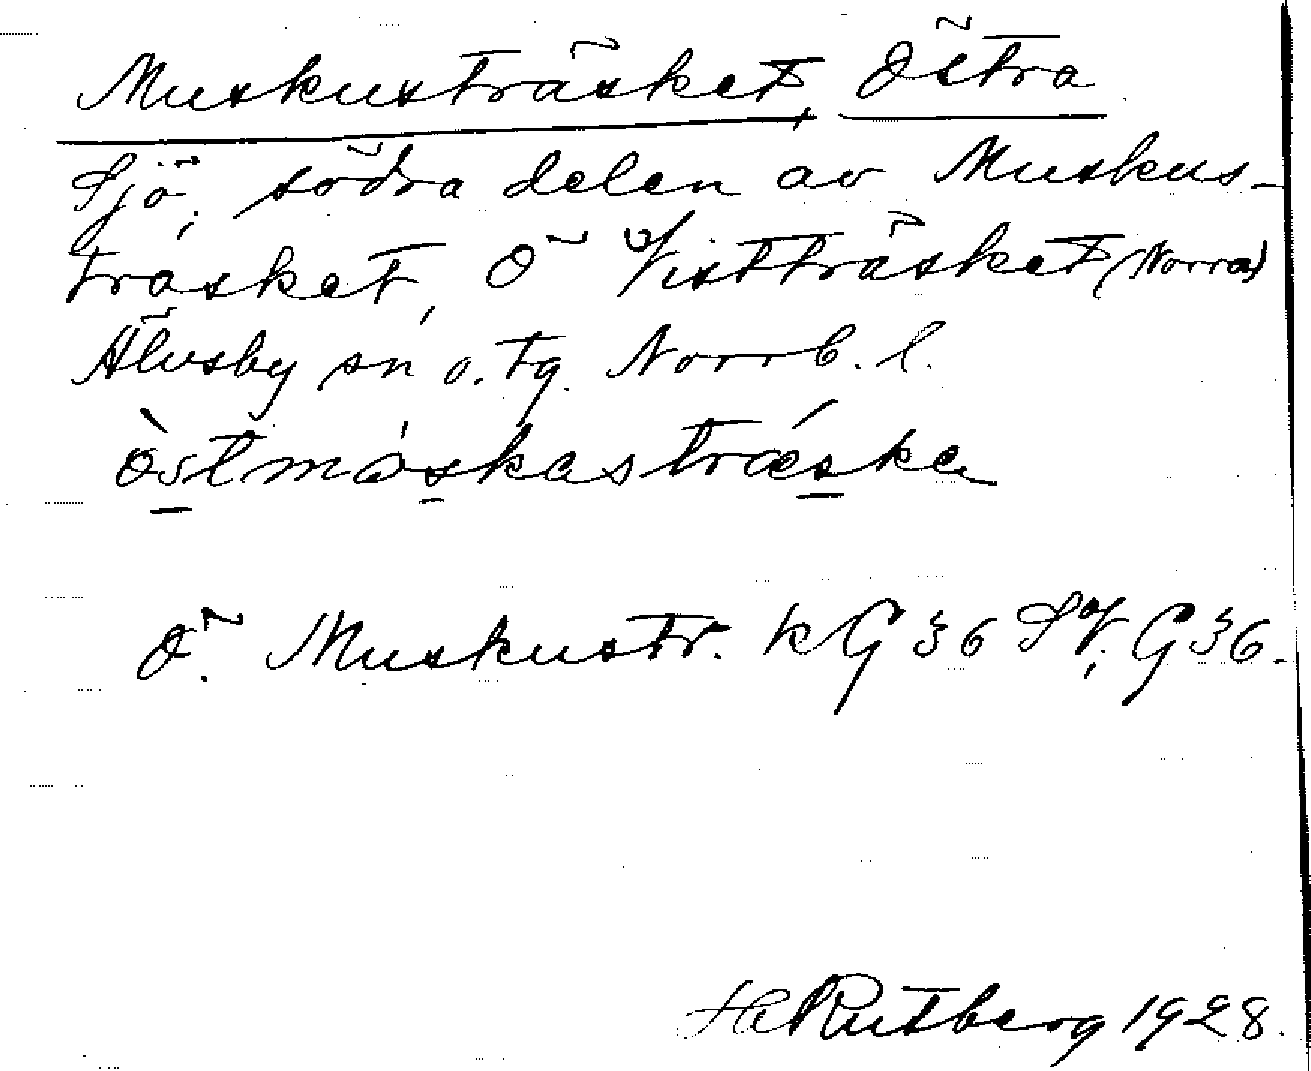 Muskusträsket, Östra
Sjö, södra delen av Muskus-
träsket, Ö Vistträsket (Norra)
Älvsby sn o. tg. Norrb. l.
òstmáskastrǽska
Ö. Muskustr. k G 36 SV, G 36.
Rutberg 1928.